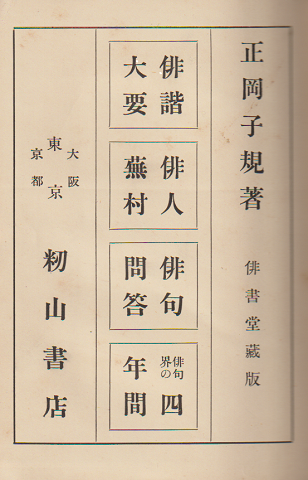 正岡子規著
俳書堂藏版
俳諧
大要
俳人
蕪村
俳句
問答
俳句界の四
年間
大阪
東京
京都
籾山書店